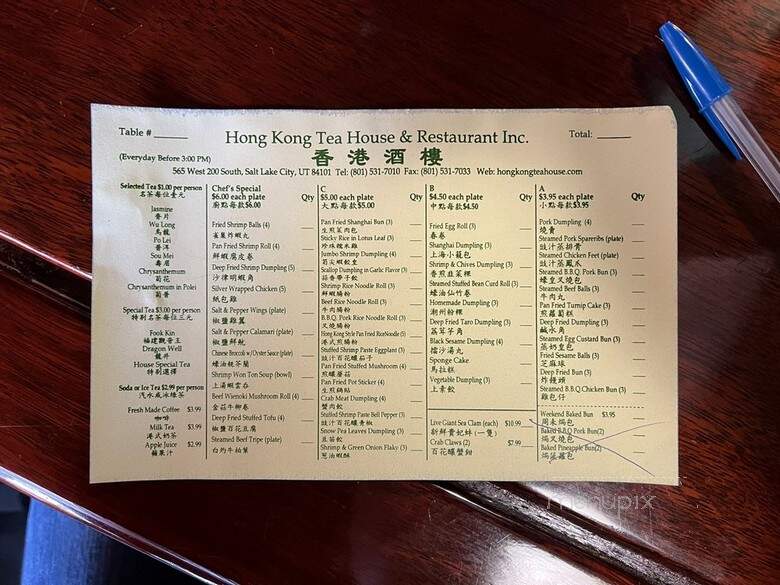 Table # ______
Total: ______
Hong Kong Tea House & Restaurant Inc.
(Everyday Before 3:00 PM)
香港酒樓
565 West 200 South, Salt Lake City, UT 84101 Tel: (801) 531-7010 Fax: (801) 531-7033 Web: hongkongteahouse.com
Selected Tea $1.00 per person
名茶每位壹元
Jasmine
香片
Wu Long
烏龍
Po Lei
普洱
Sou Mei
壽眉
Chrysanthemum
菊花
Chrysanthemum in Polei
菊普
Special Tea $3.00 per person
特別名茶每位三元
Fook Kin
福建觀音王
Dragon Well
龍井
House Special Tea
特別選擇
Soda or Ice Tea $2.99 per person
汽水或冰綠茶
Fresh Made Coffee $3.99
咖啡
Milk Tea $3.99
港式奶茶
Apple Juice $2.99
蘋果汁
Chef's Special
$6.00 each plate Qty
廚點每款$6.00
Fried Shrimp Balls (4)
雀巢炸蝦丸
Pan Fried Shrimp Roll (4)
鮮蝦腐皮卷
Deep Fried Shrimp Dumpling (5)
沙律明蝦角
Silver Wrapped Chicken (5)
紙包雞
Salt & Pepper Wings (plate)
椒鹽雞翼
Salt & Pepper Calamari (plate)
椒鹽鮮魷
Chinese Broccoli w/Oyster Sauce (plate)
蠔油芥蘭
Shrimp Won Ton Soup (bowl)
上湯蝦雲吞
Beef Wienoki Mushroom Roll (4)
金菇牛柳卷
Deep Fried Stuffed Tofu (4)
椒鹽百花豆腐
Steamed Beef Tripe (plate)
白灼牛柏葉
C
$5.00 each plate Qty
大點每款$5.00
Pan Fried Shanghai Bun (3)
生煎菜肉包
Sticky Rice in Lotus Leaf (3)
珍珠糯米雞
Jumbo Shrimp Dumpling (4)
筍尖蝦餃皇
Scallop Dumpling in Garlic Flavor (3)
蒜香帶子餃
Shrimp Rice Noodle Roll (3)
鮮蝦腸粉
Beef Rice Noodle Roll (3)
牛肉腸粉
B.B.Q. Pork Rice Noodle Roll (3)
叉燒腸粉
Hong Kong Style Pan Fried Rice Noodle (5)
港式煎腸粉
Stuffed Shrimp Paste Eggplant (3)
豉汁百花釀茄子
Pan Fried Stuffed Mushroom (4)
煎釀蘑菇
Pan Fried Pot Sticker (4)
生煎鍋貼
Crab Meat Dumpling (4)
蟹肉餃
Stuffed Shrimp Paste Bell Pepper (3)
豉汁百花釀青椒
Snow Pea Leaves Dumpling (3)
豆苗餃
Shrimp & Green Onion Flaky (3)
葱油蝦酥
B
$4.50 each plate Qty
中點每款$4.50
Fried Egg Roll (3)
春卷
Shanghai Dumpling (3)
上海小籠包
Shrimp & Chives Dumpling (3)
香煎韭菜粿
Steamed Stuffed Bean Curd Roll (3)
蠔油仙竹卷
Homemade Dumpling (3)
潮州粉粿
Deep Fried Taro Dumpling (3)
荔茸芋角
Black Sesame Dumpling (4)
擂沙湯丸
Sponge Cake
馬拉糕
Vegetable Dumpling (3)
上素餃
Live Giant Sea Clam (each) $10.99
新鮮貴妃蚌(一隻)
Crab Claws (2) $7.99
百花釀蟹鉗
A
$3.95 each plate Qty
小點每款$3.95
Pork Dumpling (4)
燒賣
Steamed Pork Spareribs (plate)
豉汁蒸排骨
Steamed Chicken Feet (plate)
豉汁蒸鳳爪
Steamed B.B.Q. Pork Bun (3)
蠔皇叉燒包
Steamed Beef Balls (3)
牛肉丸
Pan Fried Turnip Cake (3)
煎蘿蔔糕
Deep Fried Dumpling (3)
鹹水角
Steamed Egg Custard Bun (3)
蒸奶皇包
Fried Sesame Balls (3)
芝麻球
Deep Fried Bun (3)
炸饅頭
Steamed B.B.Q Chicken Bun (3)
雞包仔
Weekend Baked Bun $3.95
周末焗包
Baked B.B.Q Pork Bun(2)
焗叉燒包
Baked Pineapple Bun(2)
焗菠蘿包
menupix